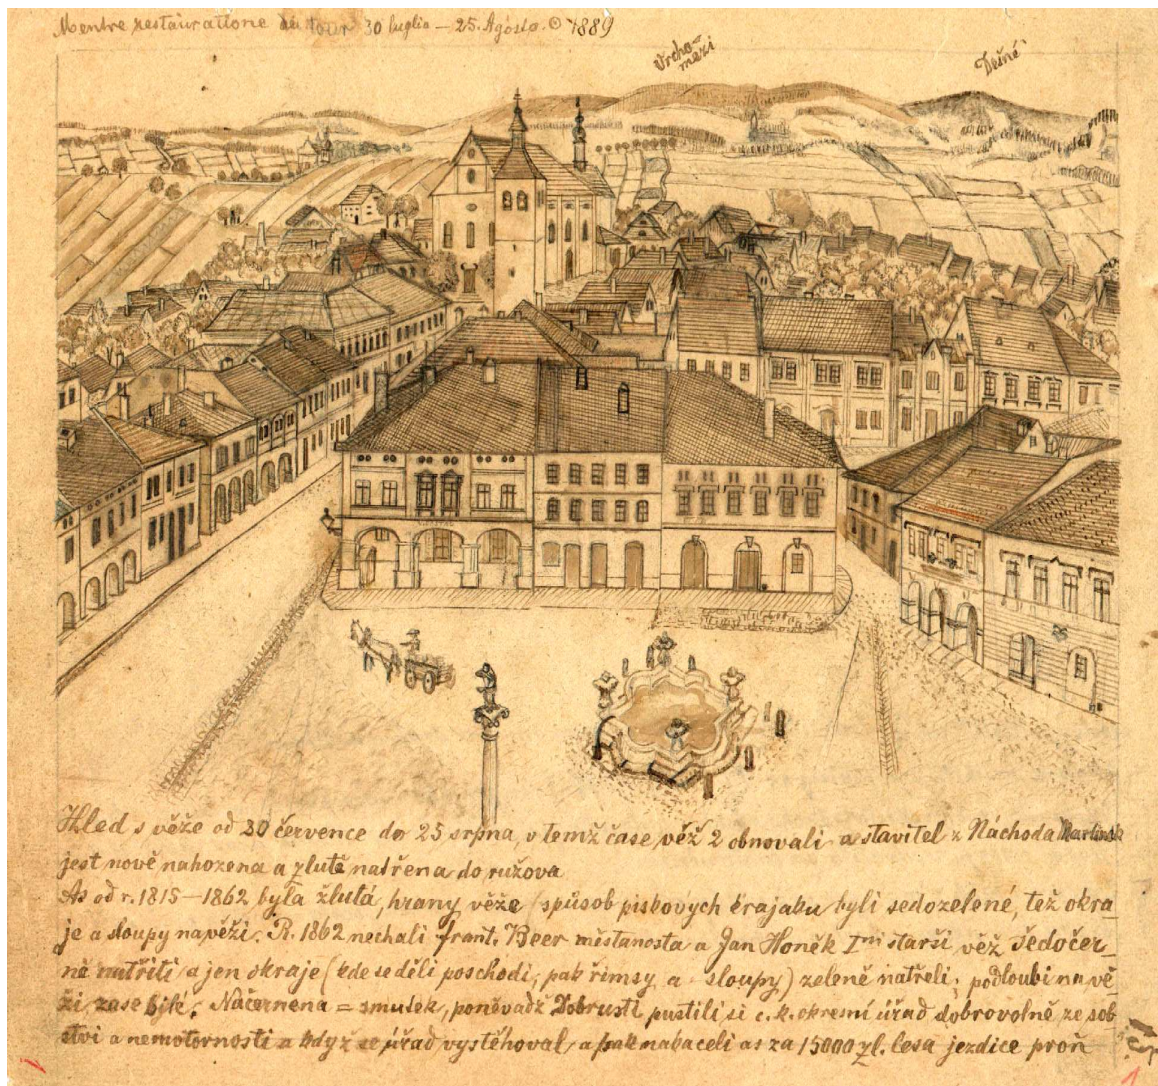 Mentre restauratione del tour 30 luglia – 25. Agosto. 1889
Vrcho-
mezi
Dešné
Hled s věže od 30 července do 25 srpna, v temž čase věž 2 obnovali a stavitel z Náchoda
jest nově nahozena a zlutě natřena do ružova
As od r. 1815–1862 byla žlutá, hrany věže (spůsob piskových krajaku byli šedozelené, též okra-
je a sloupy na věži. R. 1862 nechali frant. Beer měštanosta a Jan Honěk I ni starší věž šedočer-
ně natřiti a jen okraje (kde se děli poschodi, pak řimsy a sloupy) zeleně natřeli, podloubi na vě-
ži zase bílé. Načernena = smutek, poněvadž Dobrusti pustili si c. k. okresni úřad dobrovolně ze sob-
stvi a nemotornosti a když se úřad vystěhoval, a pak nabaceli as za 15000 zl. lesa jezdice proň